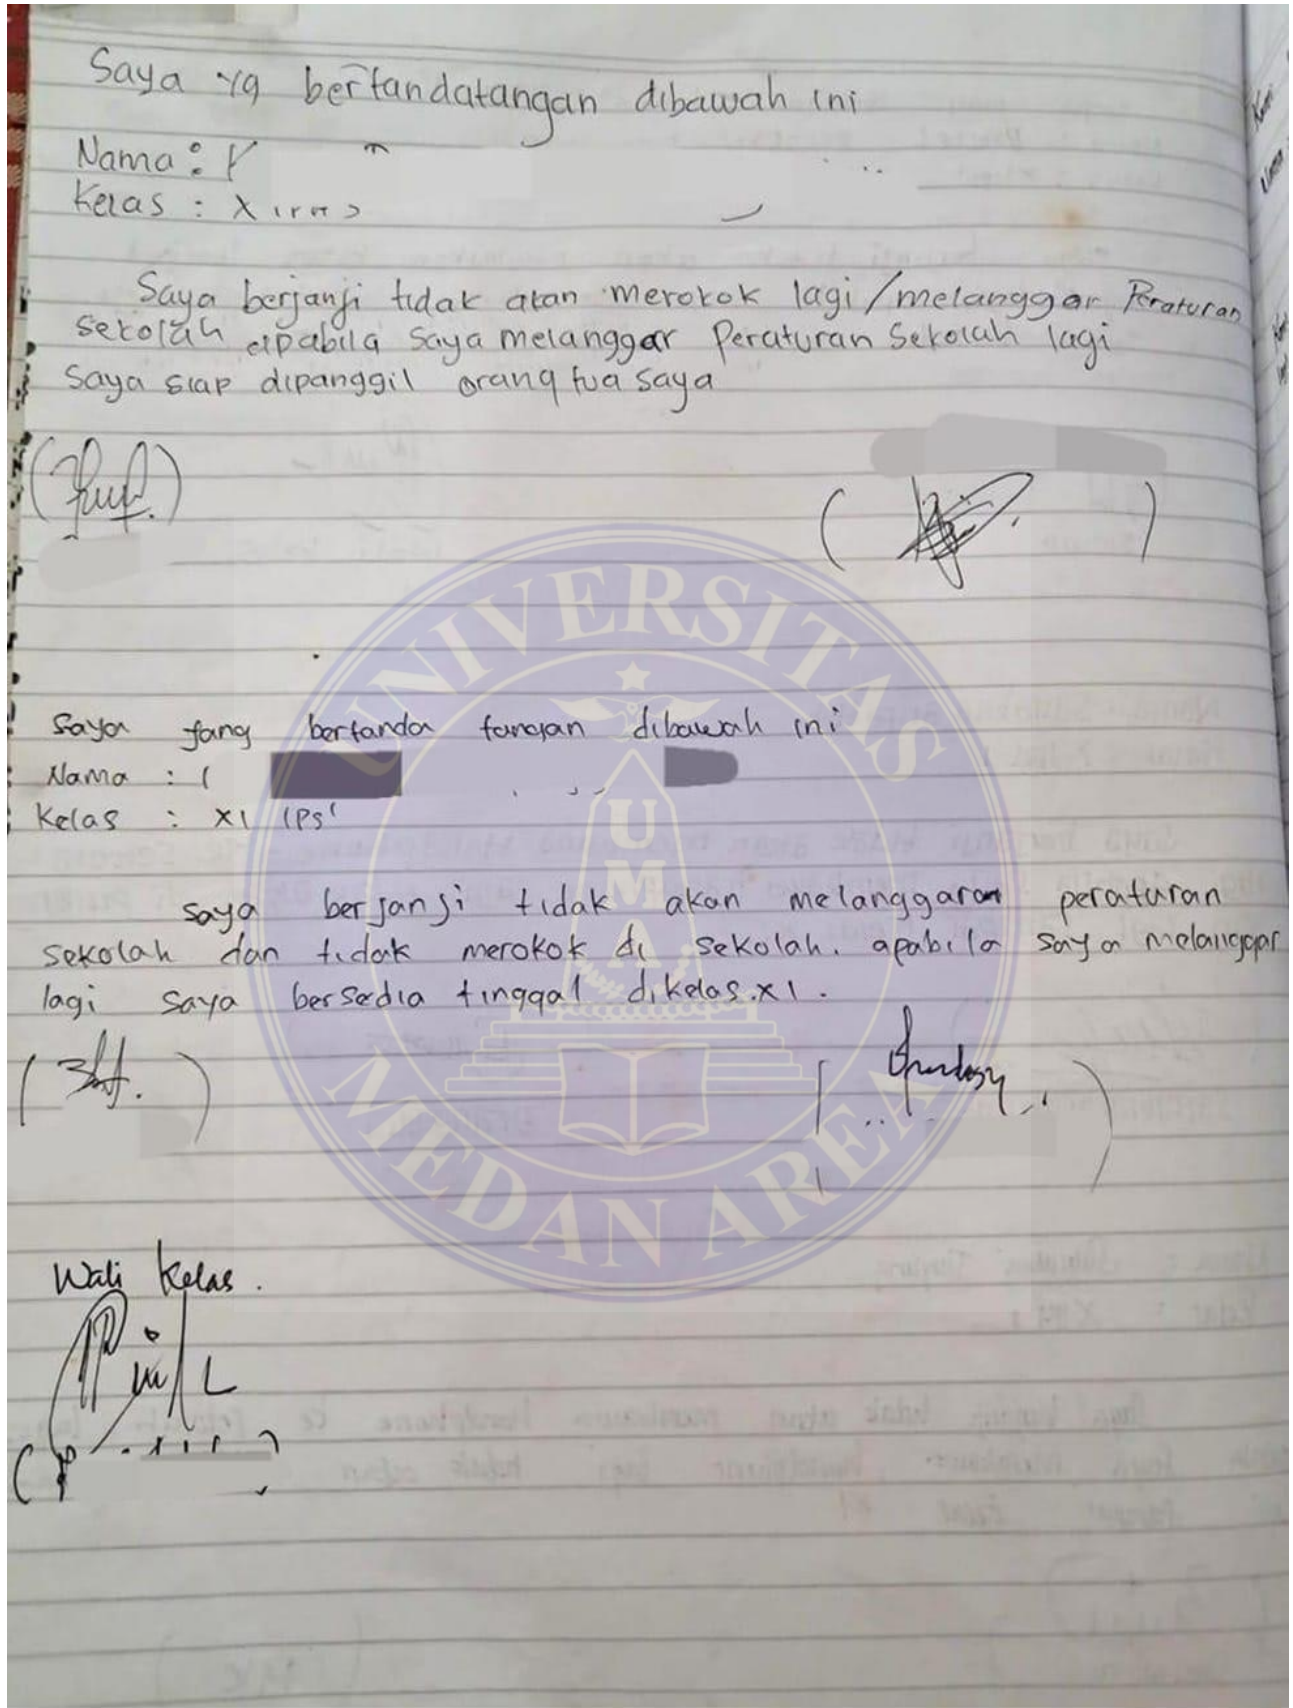 Saya yg bertandatangan dibawah ini
Nama :
Kelas : X
Saya berjanji tidak akan merokok lagi/melanggar Peraturan
sekolah apabila saya melanggar Peraturan Sekolah lagi
saya siap dipanggil orang tua saya
UNIVERSITAS
saya yang bertanda tangan dibawah ini
Nama :
Kelas : XI IPS
UMA
saya berjanji tidak akan melanggaran peraturan
sekolah dan tidak merokok di sekolah. apabila saya melanggar
lagi saya bersedia tinggal dikelas.XI.
MEDAN AREA
Wali Kelas.